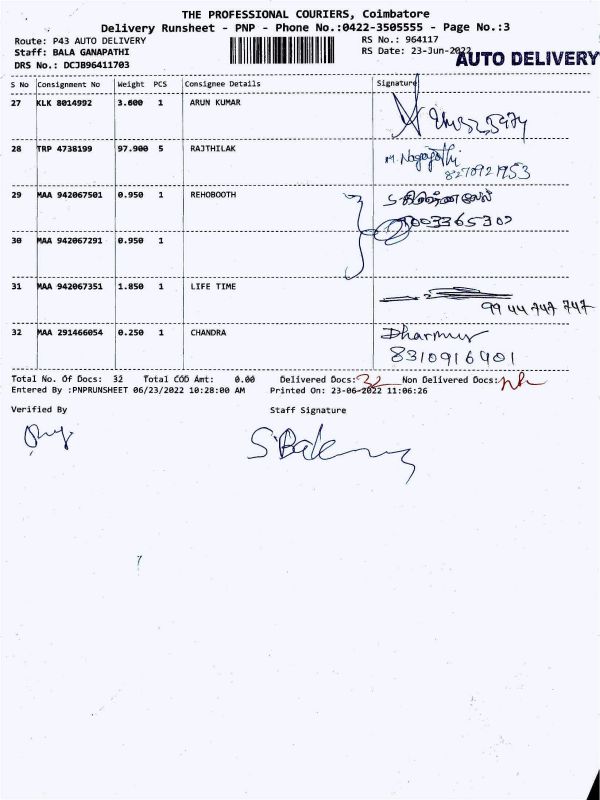 THE PROFESSIONAL COURIERS, Coimbatore
Delivery Runsheet - PNP - Phone No.:0422-3505555 - Page No.:3
Route: P43 AUTO DELIVERY
RS No.: 964117
Staff: BALA GANAPATHI
RS Date: 23-Jun-2022
AUTO DELIVERY
DRS No.: DCJB96411703
S No Consignment No Weight PCS Consignee Details Signature
27 KLK 8014992 3.600 1 ARUN KUMAR
28 TRP 4738199 97.900 5 RAJTHILAK
8270921953
29 MAA 942067501 0.950 1 REHOBOOTH
30 MAA 942067291 0.950 1
31 MAA 942067351 1.850 1 LIFE TIME
99 44 747 747
32 MAA 291466054 0.250 1 CHANDRA
8310916401
Total No. Of Docs: 32 Total COD Amt: 0.00 Delivered Docs: 32 Non Delivered Docs:
Entered By :PNPRUNSHEET 06/23/2022 10:28:00 AM Printed On: 23-06-2022 11:06:26
Verified By Staff Signature